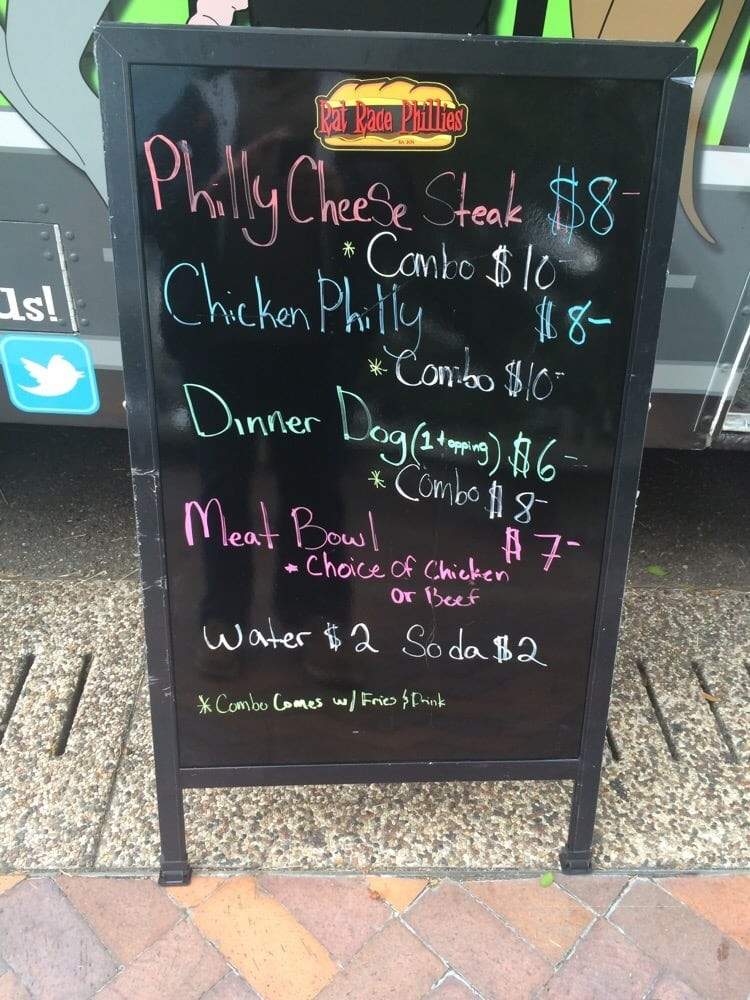 Rat Race Phillies
Philly Cheese Steak $8-
* Combo $10-
Chicken Philly $8-
* Combo $10-
Dinner Dog (1 topping) $6-
* Combo $8-
Meat Bowl $7-
* Choice of Chicken
or Beef
Water $2 Soda $2
* Combo Comes w/ Fries & Drink
us!